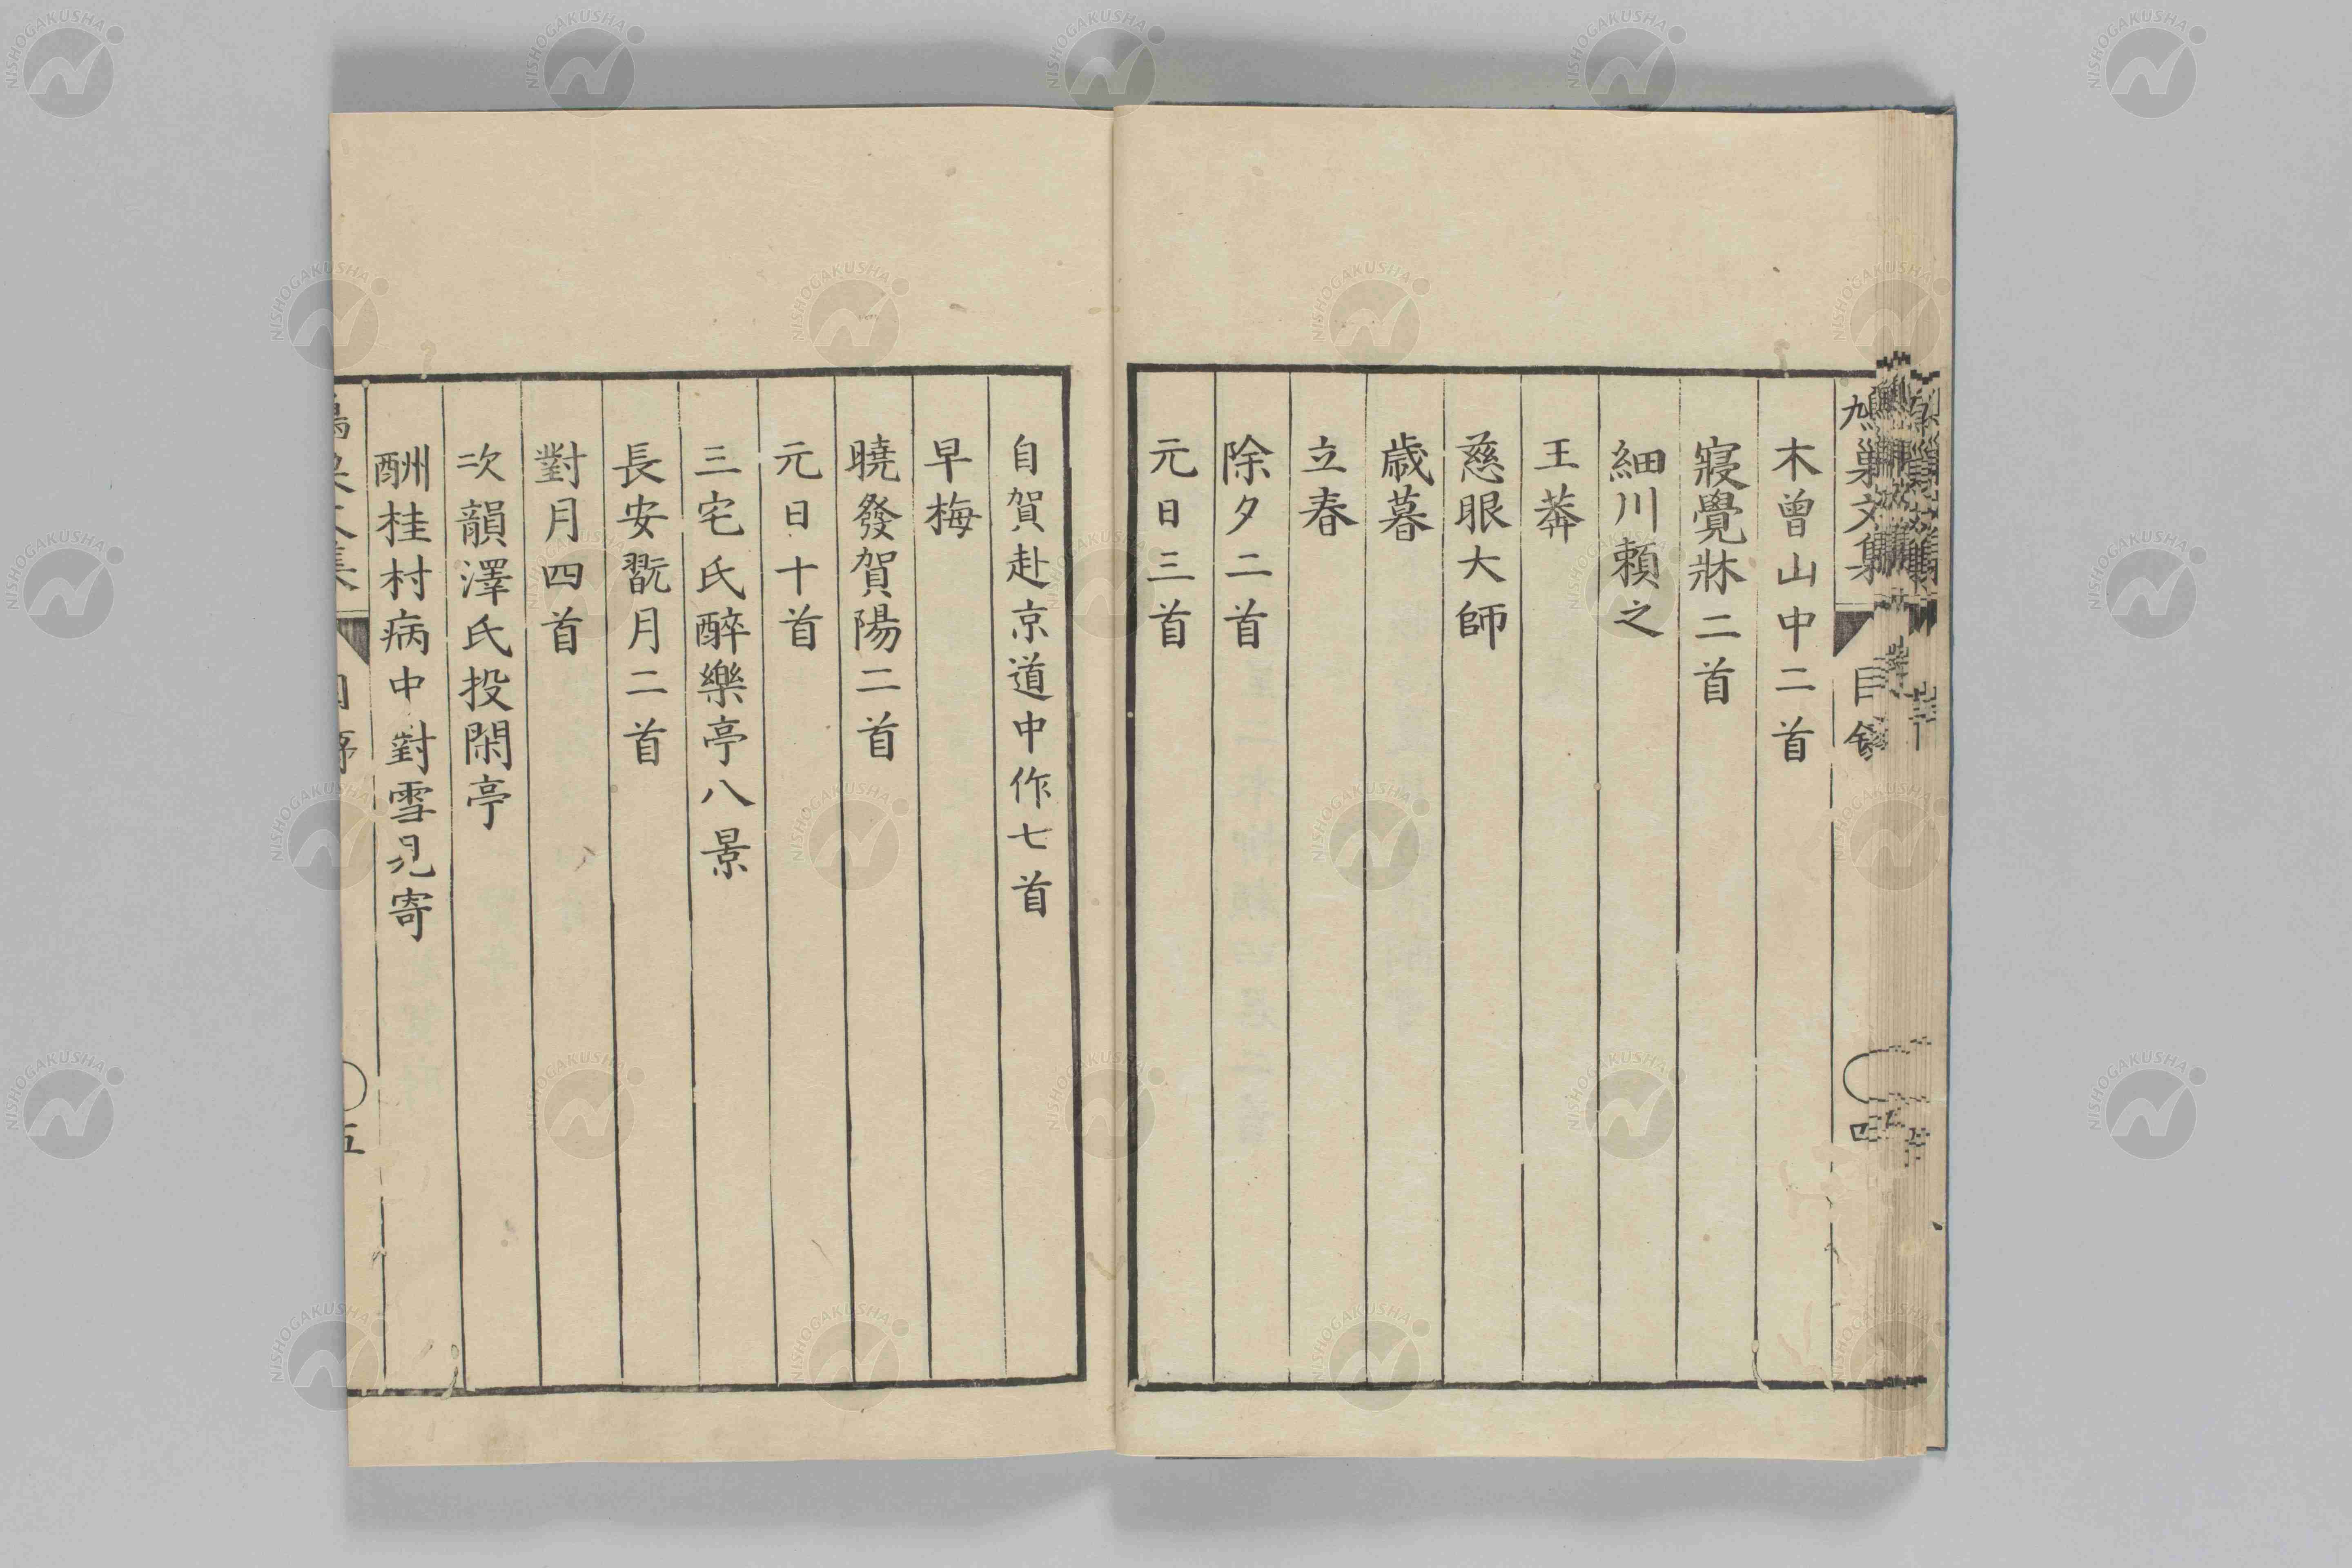 木曾山中二首
寢覺牀二首
細川賴之
王莽
慈眼大師
歳暮
立春
除夕二首
元日三首
自賀赴京道中作七首
早梅
曉發賀陽二首
元日十首
三宅氏醉樂亭八景
長安翫月二首
對月四首
次韻澤氏投閑亭
酬桂村病中對雪見寄
五
NISHOGAKUSHA